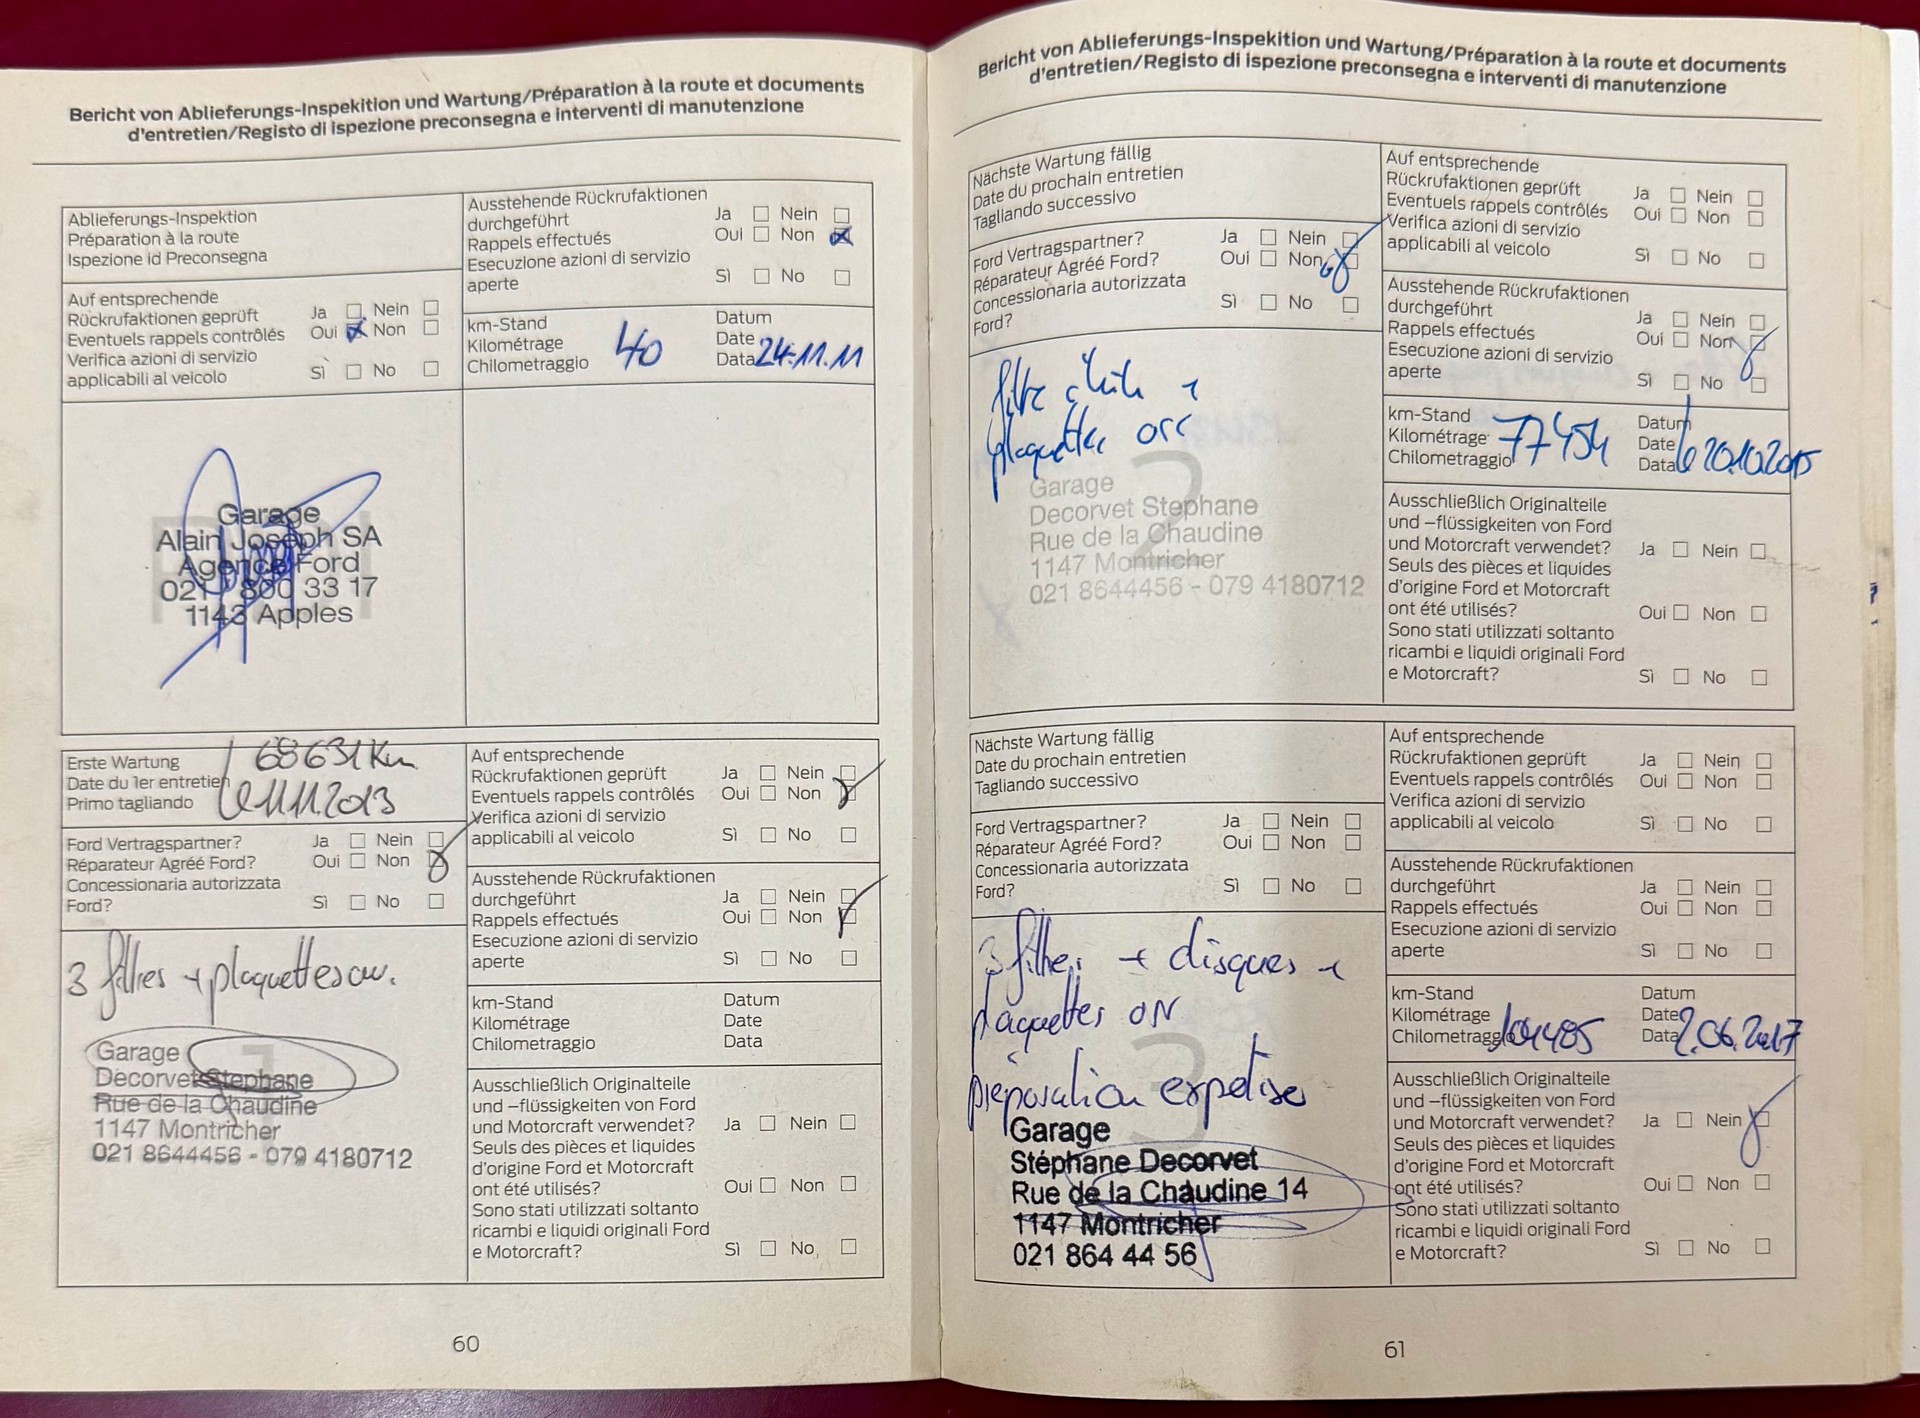 Bericht von Ablieferungs-Inspekition und Wartung/Préparation à la route et documents
d'entretien/Registo di ispezione preconsegna e interventi di manutenzione
Ablieferungs-Inspektion
Préparation à la route
Ispezione id Preconsegna
Auf entsprechende
Rückrufaktionen geprüft Ja Nein
Eventuels rappels contrôlés Oui Non
Verifica azioni di servizio
applicabili al veicolo Sì No
Ausstehende Rückrufaktionen
durchgeführt Ja Nein
Rappels effectués Oui Non
Esecuzione azioni di servizio
aperte Sì No
km-Stand
Kilométrage
Chilometraggio
40
Datum
Date
Data 24.11.11
Garage
Alain Joseph SA
Agence Ford
021 800 33 17
1143 Apples
Erste Wartung
Date du 1er entretien
Primo tagliando
68631 Km
11.11.2013
Ford Vertragspartner? Ja Nein
Réparateur Agréé Ford? Oui Non
Concessionaria autorizzata
Ford? Sì No
3 filtres + plaquettes
Garage
Decorvet Stephane
Rue de la Chaudine
1147 Montricher
021 8644456 - 079 4180712
Auf entsprechende
Rückrufaktionen geprüft Ja Nein
Eventuels rappels contrôlés Oui Non
Verifica azioni di servizio
applicabili al veicolo Sì No
Ausstehende Rückrufaktionen
durchgeführt Ja Nein
Rappels effectués Oui Non
Esecuzione azioni di servizio
aperte Sì No
km-Stand Datum
Kilométrage Date
Chilometraggio Data
Ausschließlich Originalteile
und –flüssigkeiten von Ford
und Motorcraft verwendet? Ja Nein
Seuls des pièces et liquides
d'origine Ford et Motorcraft
ont été utilisés? Oui Non
Sono stati utilizzati soltanto
ricambi e liquidi originali Ford
e Motorcraft? Sì No
60
Bericht von Ablieferungs-Inspekition und Wartung/Préparation à la route et documents
d'entretien/Registo di ispezione preconsegna e interventi di manutenzione
Nächste Wartung fällig
Date du prochain entretien
Tagliando successivo
Ford Vertragspartner? Ja Nein
Réparateur Agréé Ford? Oui Non
Concessionaria autorizzata
Ford? Sì No
filtre +
plaquettes
Garage
Decorvet Stephane
Rue de la Chaudine
1147 Montricher
021 8644456 - 079 4180712
Auf entsprechende
Rückrufaktionen geprüft Ja Nein
Eventuels rappels contrôlés Oui Non
Verifica azioni di servizio
applicabili al veicolo Sì No
Ausstehende Rückrufaktionen
durchgeführt Ja Nein
Rappels effectués Oui Non
Esecuzione azioni di servizio
aperte Sì No
km-Stand
Kilométrage
Chilometraggio
77454
Datum
Date
Data 20.10.2015
Ausschließlich Originalteile
und –flüssigkeiten von Ford
und Motorcraft verwendet? Ja Nein
Seuls des pièces et liquides
d'origine Ford et Motorcraft
ont été utilisés? Oui Non
Sono stati utilizzati soltanto
ricambi e liquidi originali Ford
e Motorcraft? Sì No
Nächste Wartung fällig
Date du prochain entretien
Tagliando successivo
Ford Vertragspartner? Ja Nein
Réparateur Agréé Ford? Oui Non
Concessionaria autorizzata
Ford? Sì No
3 filtres + disques +
plaquettes
préparation expertise
Garage
Stéphane Decorvet
Rue de la Chaudine 14
1147 Montricher
021 864 44 56
Auf entsprechende
Rückrufaktionen geprüft Ja Nein
Eventuels rappels contrôlés Oui Non
Verifica azioni di servizio
applicabili al veicolo Sì No
Ausstehende Rückrufaktionen
durchgeführt Ja Nein
Rappels effectués Oui Non
Esecuzione azioni di servizio
aperte Sì No
km-Stand
Kilométrage
Chilometraggio
Datum
Date
Data 2.06.2017
Ausschließlich Originalteile
und –flüssigkeiten von Ford
und Motorcraft verwendet? Ja Nein
Seuls des pièces et liquides
d'origine Ford et Motorcraft
ont été utilisés? Oui Non
Sono stati utilizzati soltanto
ricambi e liquidi originali Ford
e Motorcraft? Sì No
61